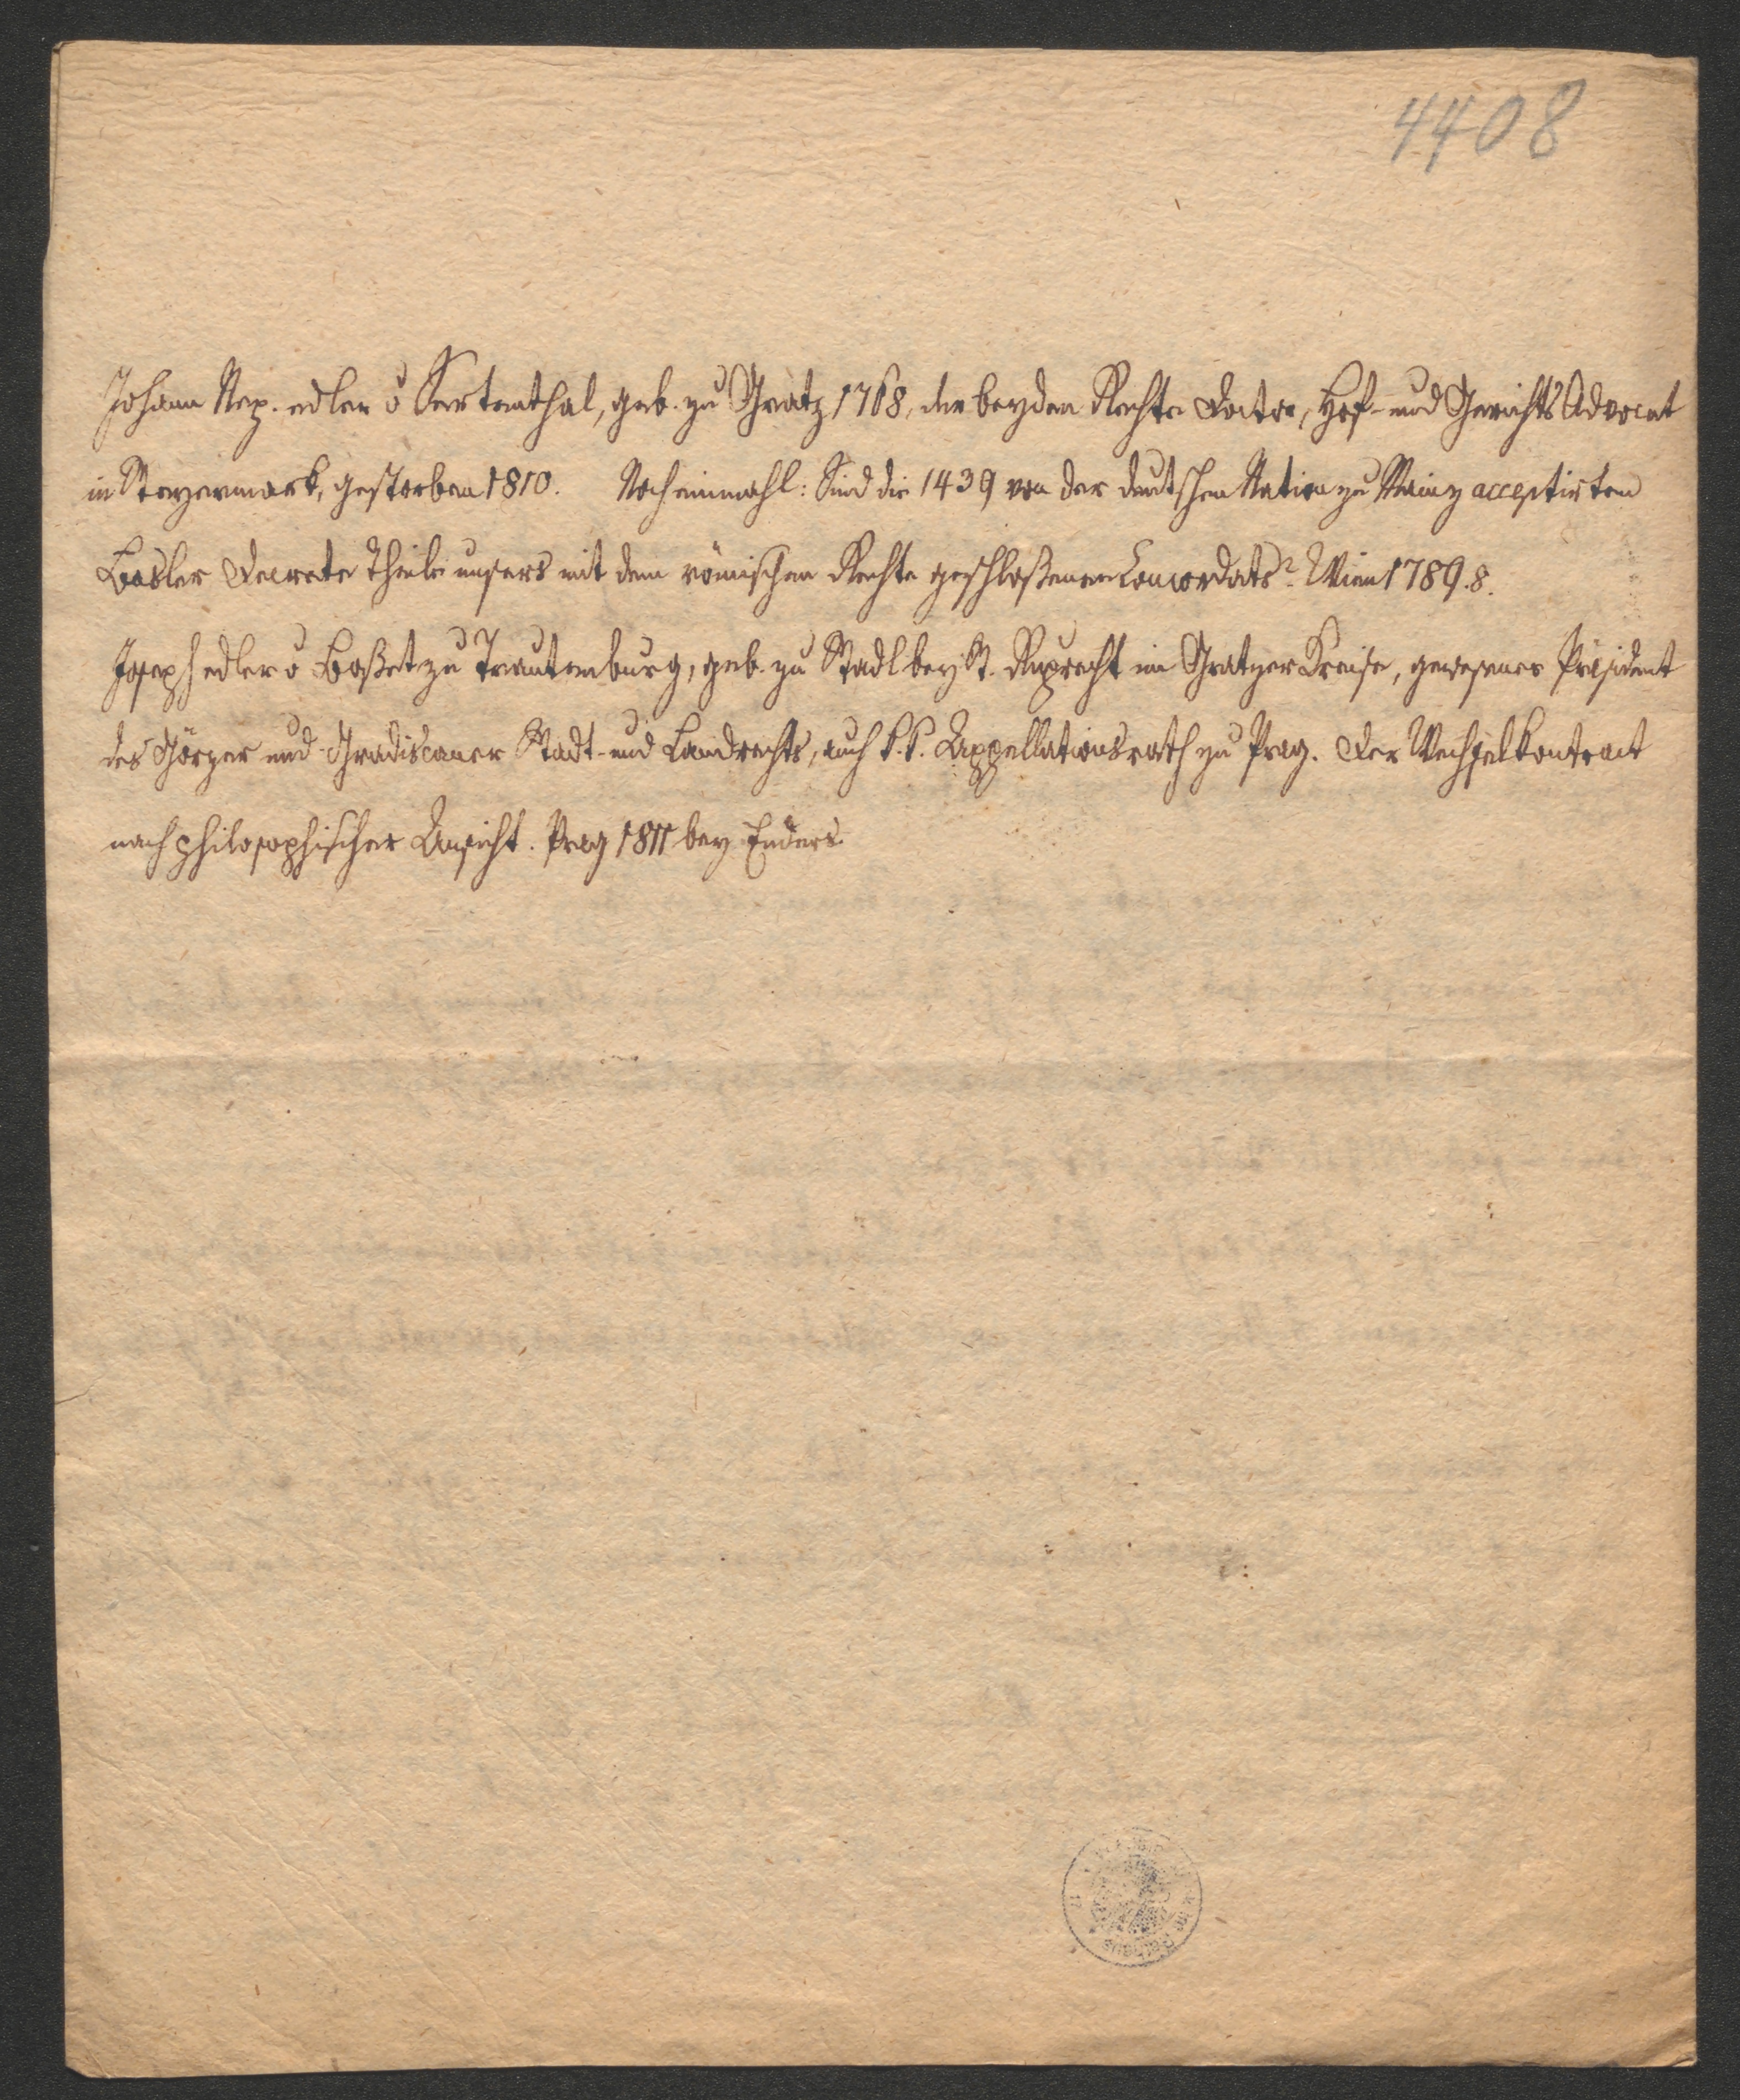 4408
Johann Nep. edler v Sartenthal, geb. zu Gratz 1768, der beyden Rechte Doctor, Hof- und Gerichts Advocat
in Steyermark, gestorben 1810. Noch einmahl: Sind die 1439 von der deutschen Nation zu Mainz acceptirten
Basler Decrete Theile unsers mit dem römischen Rechte geschloßenen Concordats? Wien 1789. 8.
Joseph edler v Baßet zu Trautenburg, geb. zu Stadl bey St. Ruprecht im Gratzer Kreise, gewesener Präsident
des Görzer und Gradiscaner Stadt- und Landrechts, auch k. k. Appellationsrath zu Prag. Der Wechselkontract
nach philosophischer Ansicht. Prag 1811 bey Enders.